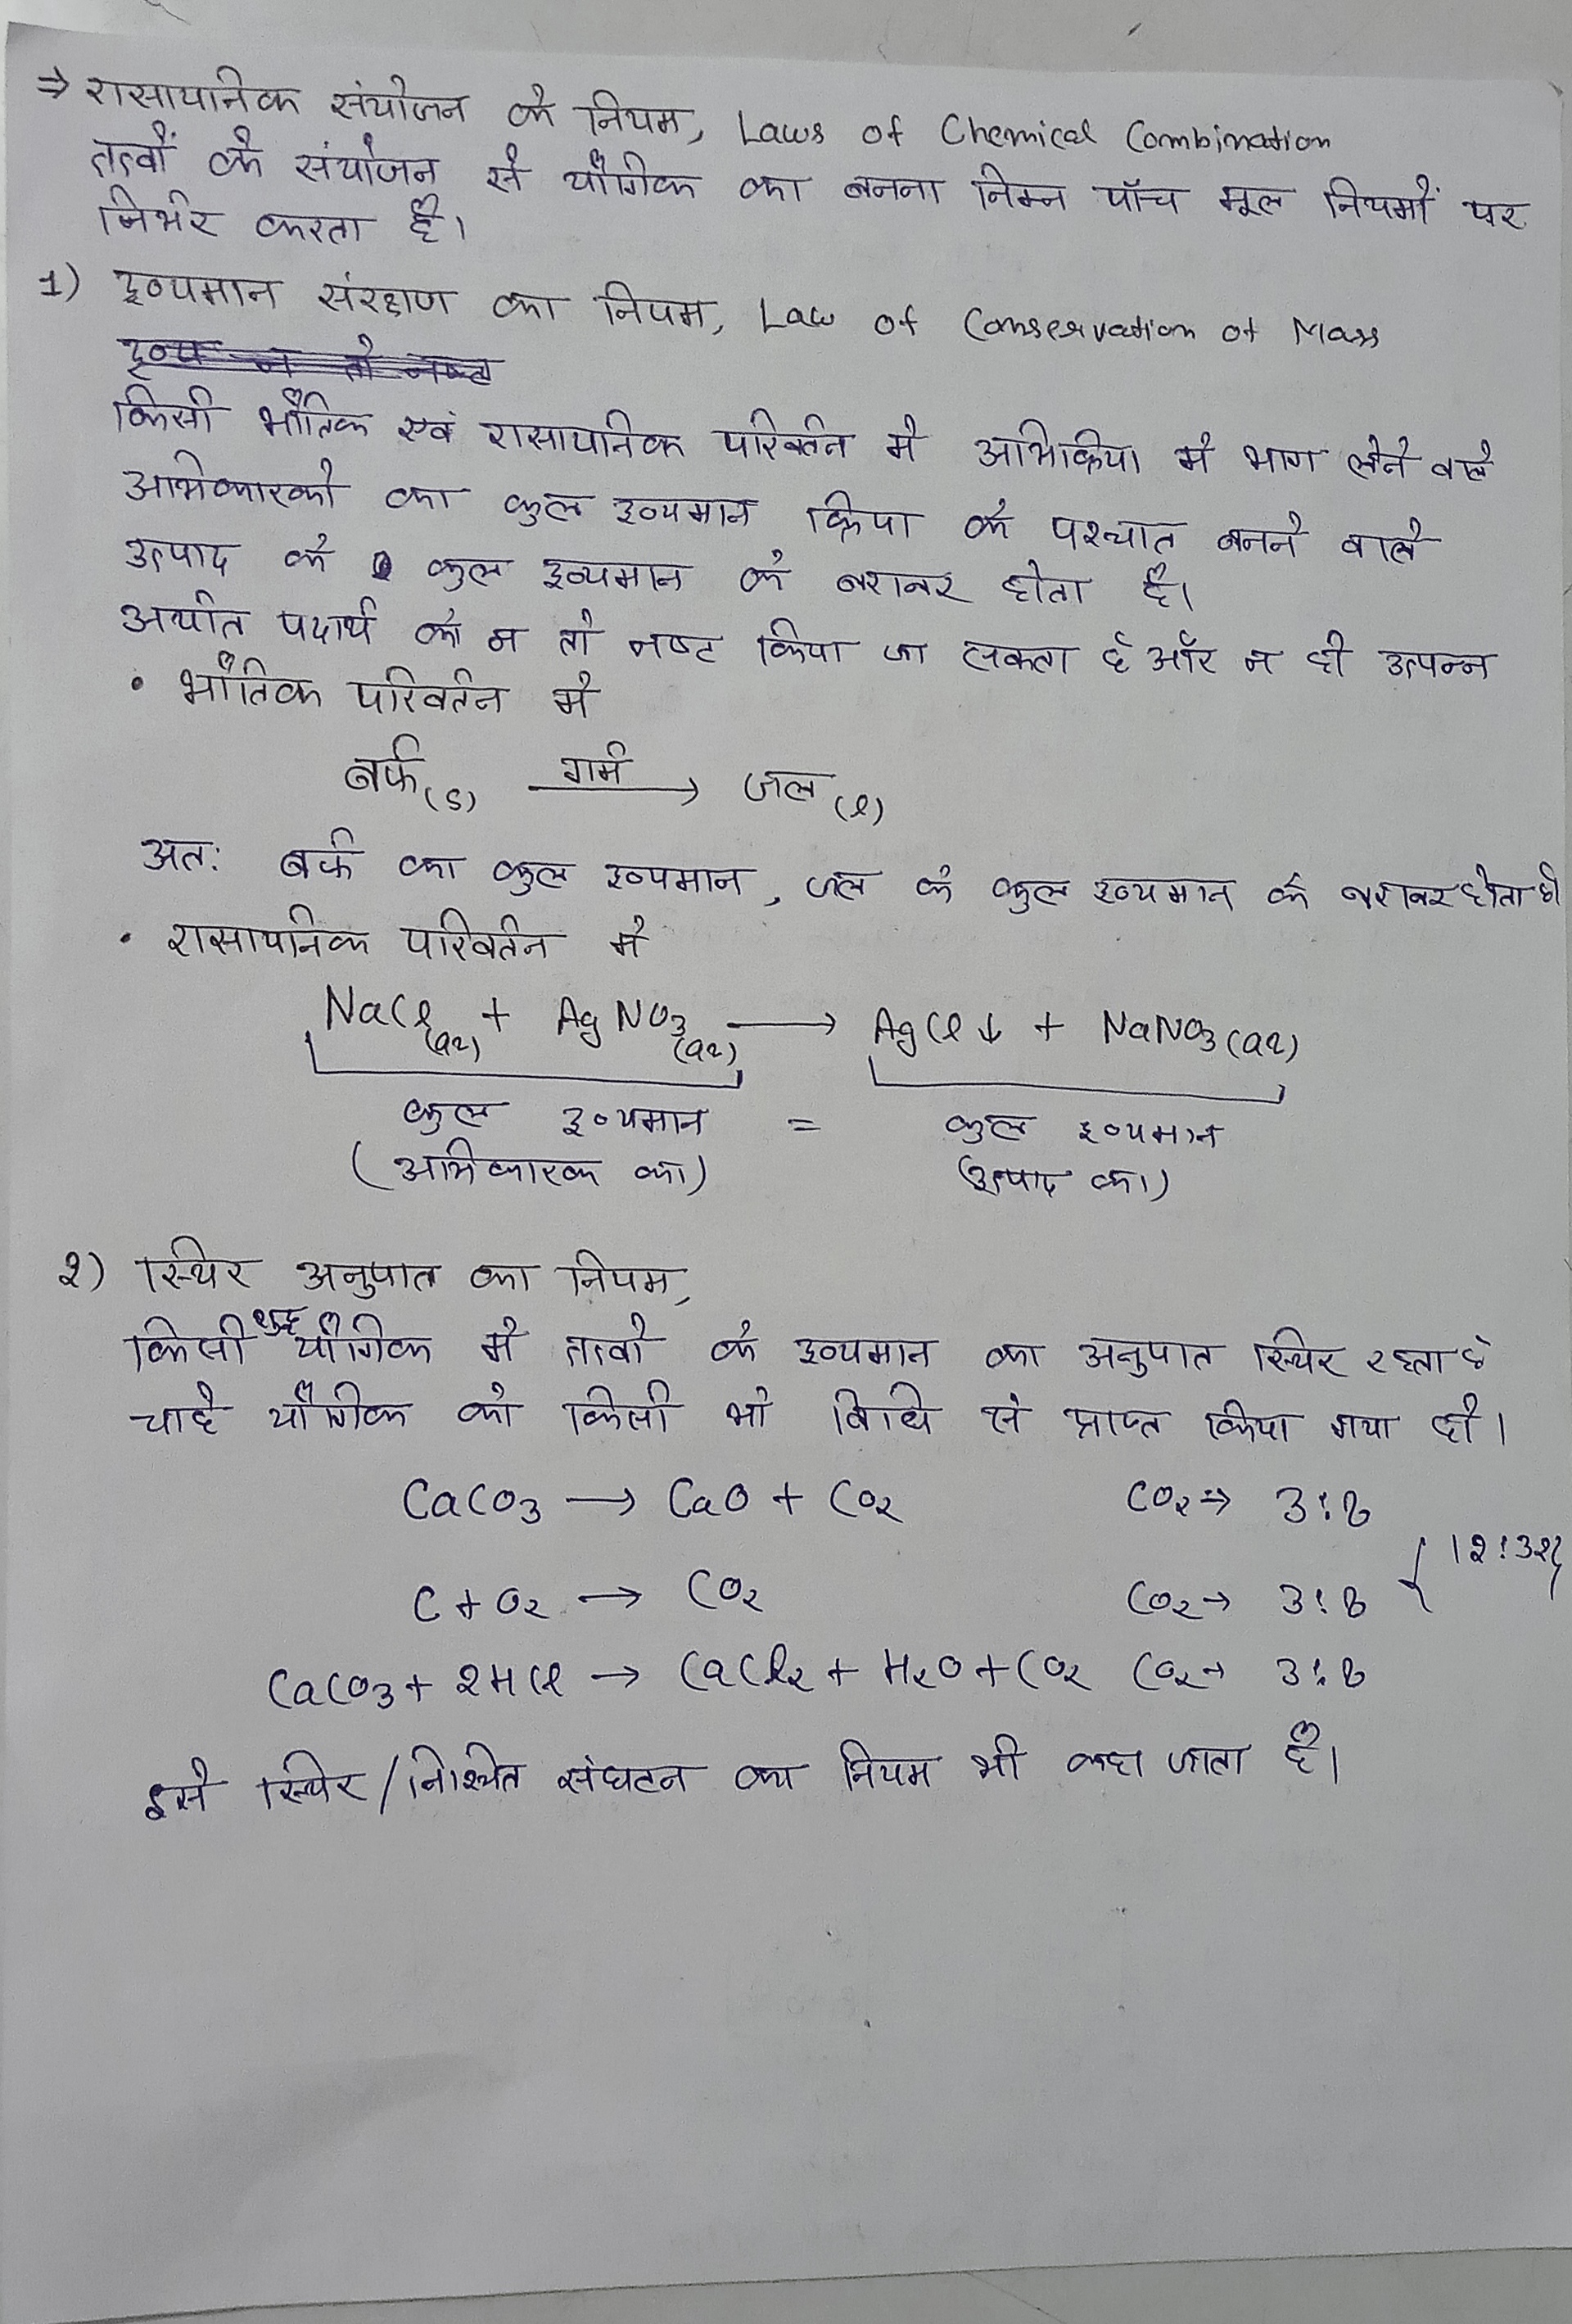 ⇒ रासायनिक संयोजन के नियम, Laws of Chemical Combination
तत्वों के संयोजन से यौगिक का बनना निम्न पाँच मूल नियमों पर
निर्भर करता है।
1) द्रव्यमान संरक्षण का नियम, Law of Conservation of Mass
द्रव्य न तो नष्ट
किसी भौतिक एवं रासायनिक परिवर्तन मे अभिक्रिया मे भाग लेने वाले
अभिकारको का कुल द्रव्यमान क्रिया के पश्चात बनने वाले
उत्पाद के कुल द्रव्यमान के बराबर होता है।
अर्थात पदार्थ को न तो नष्ट किया जा सकता है और न ही उत्पन्न
• भौतिक परिवर्तन मे
बर्फ(s) गर्म → जल(l)
अत: बर्फ का कुल द्रव्यमान, जल के कुल द्रव्यमान के बराबर होता है
• रासायनिक परिवर्तन मे
NaCl(aq) + AgNO3(aq) → AgCl↓ + NaNO3(aq)
कुल द्रव्यमान = कुल द्रव्यमान
(अभिकारक का) (उत्पाद का)
2) स्थिर अनुपात का नियम,
किसी शुद्ध यौगिक मे तत्वो के द्रव्यमान का अनुपात स्थिर रहता है
चाहे यौगिक को किसी भी विधि से प्राप्त किया गया हो।
CaCO3 → CaO + CO2 CO2⇒ 3:8
{12:32}
C + O2 → CO2 CO2→ 3:8
CaCO3 + 2HCl → CaCl2 + H2O + CO2 CO2→ 3:8
इसे स्थिर/निश्चित संघटन का नियम भी कहा जाता है।